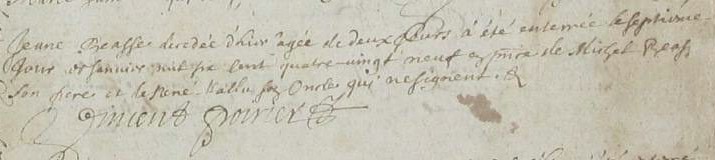 Jeanne Beasse decedée d'hier âgée de deux jours a été enterrée le septieme
jour de Janvier mil six cent quatre-vingt neuf en pnce de Michel Beasse
son pere et de René Hallu son Oncle qui ne signent. &
Vincent Poirier